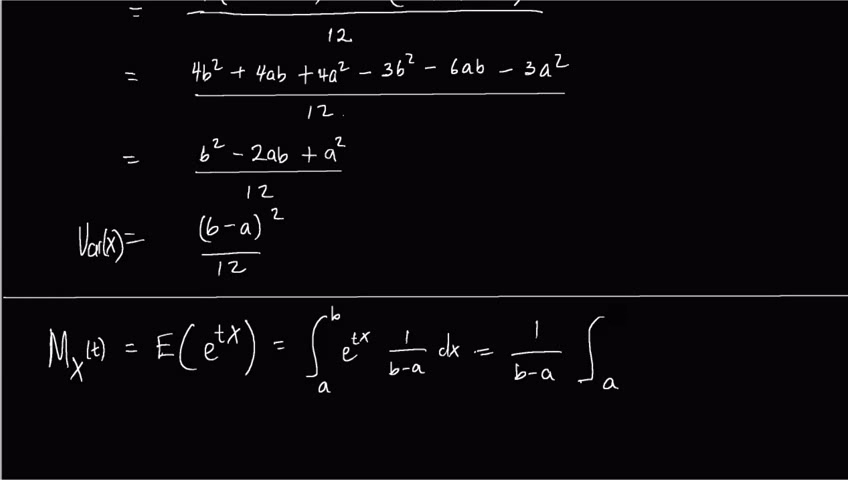 =
12
= 4b² + 4ab + 4a² - 3b² - 6ab - 3a²
12.
= b² - 2ab + a²
12
Var(x)= (b-a)²
12
M_X(t) = E(e^{tX}) = ∫_a^b e^{tx} 1/(b-a) dx = 1/(b-a) ∫_a